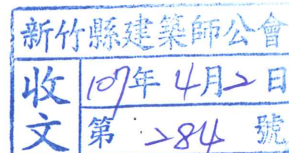 新竹縣建築師公會
收文
107年4月2日
第 284 號